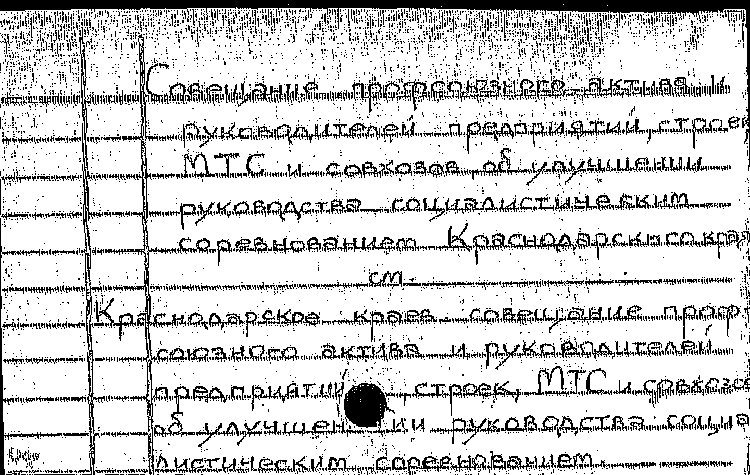 Совещание профсоюзного актива и
руководителей предприятий, строек
МТС и совхозов об улучшении
руководства социалистическим
соревнованием Краснодарского края
см.
Краснодарское краев. совещание проф-
союзного актива и руководителей
предприятий, строек, МТС и совхозов
об улучшении руководства социа-
листическим соревнованием.